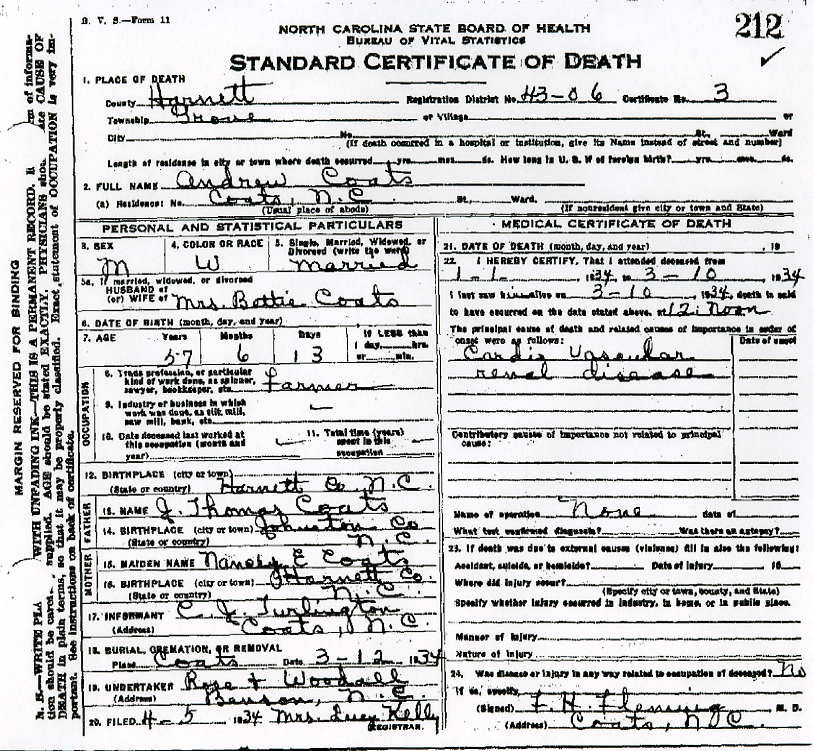 B. V. S.—Form 11
212
NORTH CAROLINA STATE BOARD OF HEALTH
BUREAU OF VITAL STATISTICS
STANDARD CERTIFICATE OF DEATH
MARGIN RESERVED FOR BINDING
1. PLACE OF DEATH
County Harnett Registration District No. 43-06 Certificate No. 3
Township Grove or Village or
City No. St., Ward
(If death occurred in a hospital or institution, give its Name instead of street and number)
Length of residence in city or town where death occurred yrs. mos. ds. How long in U. S. if of foreign birth? yrs. mos. ds.
2. FULL NAME Andrew Coats
(a) Residence: No. Coats, N.C. St., Ward.
(Usual place of abode) (If nonresident give city or town and State)
PERSONAL AND STATISTICAL PARTICULARS
3. SEX 4. COLOR OR RACE 5. Single, Married, Widowed, or
Divorced (write the word)
M W married
5a. If married, widowed, or divorced
HUSBAND of
(or) WIFE of Mrs. Bettie Coats
6. DATE OF BIRTH (month, day, and year)
7. AGE Years Months Days If LESS than
1 day, hrs.
57 6 13 or min.
OCCUPATION
8. Trade, profession, or particular
kind of work done, as spinner,
sawyer, bookkeeper, etc. Farmer
9. Industry or business in which
work was done, as silk mill,
saw mill, bank, etc.
10. Date deceased last worked at
this occupation (month and
year)
11. Total time (years)
spent in this
occupation
12. BIRTHPLACE (city or town)
(State or country) Harnett Co N.C.
FATHER
13. NAME J. Thomas Coats
14. BIRTHPLACE (city or town) Johnston Co
(State or country) N.C.
MOTHER
15. MAIDEN NAME Nancy E Coats
16. BIRTHPLACE (city or town) Harnett Co.
(State or country) N.C.
17. INFORMANT C. J. Turlington
(Address) Coats, N.C.
18. BURIAL, CREMATION, OR REMOVAL
Place Coats Date 3-12 1934
19. UNDERTAKER Rose & Woodall
(Address) Benson, N.C.
20. FILED 4-5 1934 Mrs. Lucy Kelly
REGISTRAR.
MEDICAL CERTIFICATE OF DEATH
21. DATE OF DEATH (month, day, and year) , 19
22. I HEREBY CERTIFY, That I attended deceased from
1-1- 1934 to 3-10, 1934
I last saw him alive on 3-10, 1934, death is said
to have occurred on the date stated above, at 12:Noon
The principal cause of death and related causes of importance in order of
onset were as follows: Date of onset
Cardio Vascular
renal disease
Contributory causes of importance not related to principal
cause:
Name of operation None date of
What test confirmed diagnosis? Was there an autopsy?
23. If death was due to external causes (violence) fill in also the following:
Accident, suicide, or homicide? Date of injury 19
Where did injury occur?
(Specify city or town, county, and State)
Specify whether injury occurred in industry, in home, or in public place.
Manner of injury
Nature of injury
24. Was disease or injury in any way related to occupation of deceased? No
If so, specify
(Signed) F. H. Fleming M. D.
(Address) Coats, N.C.